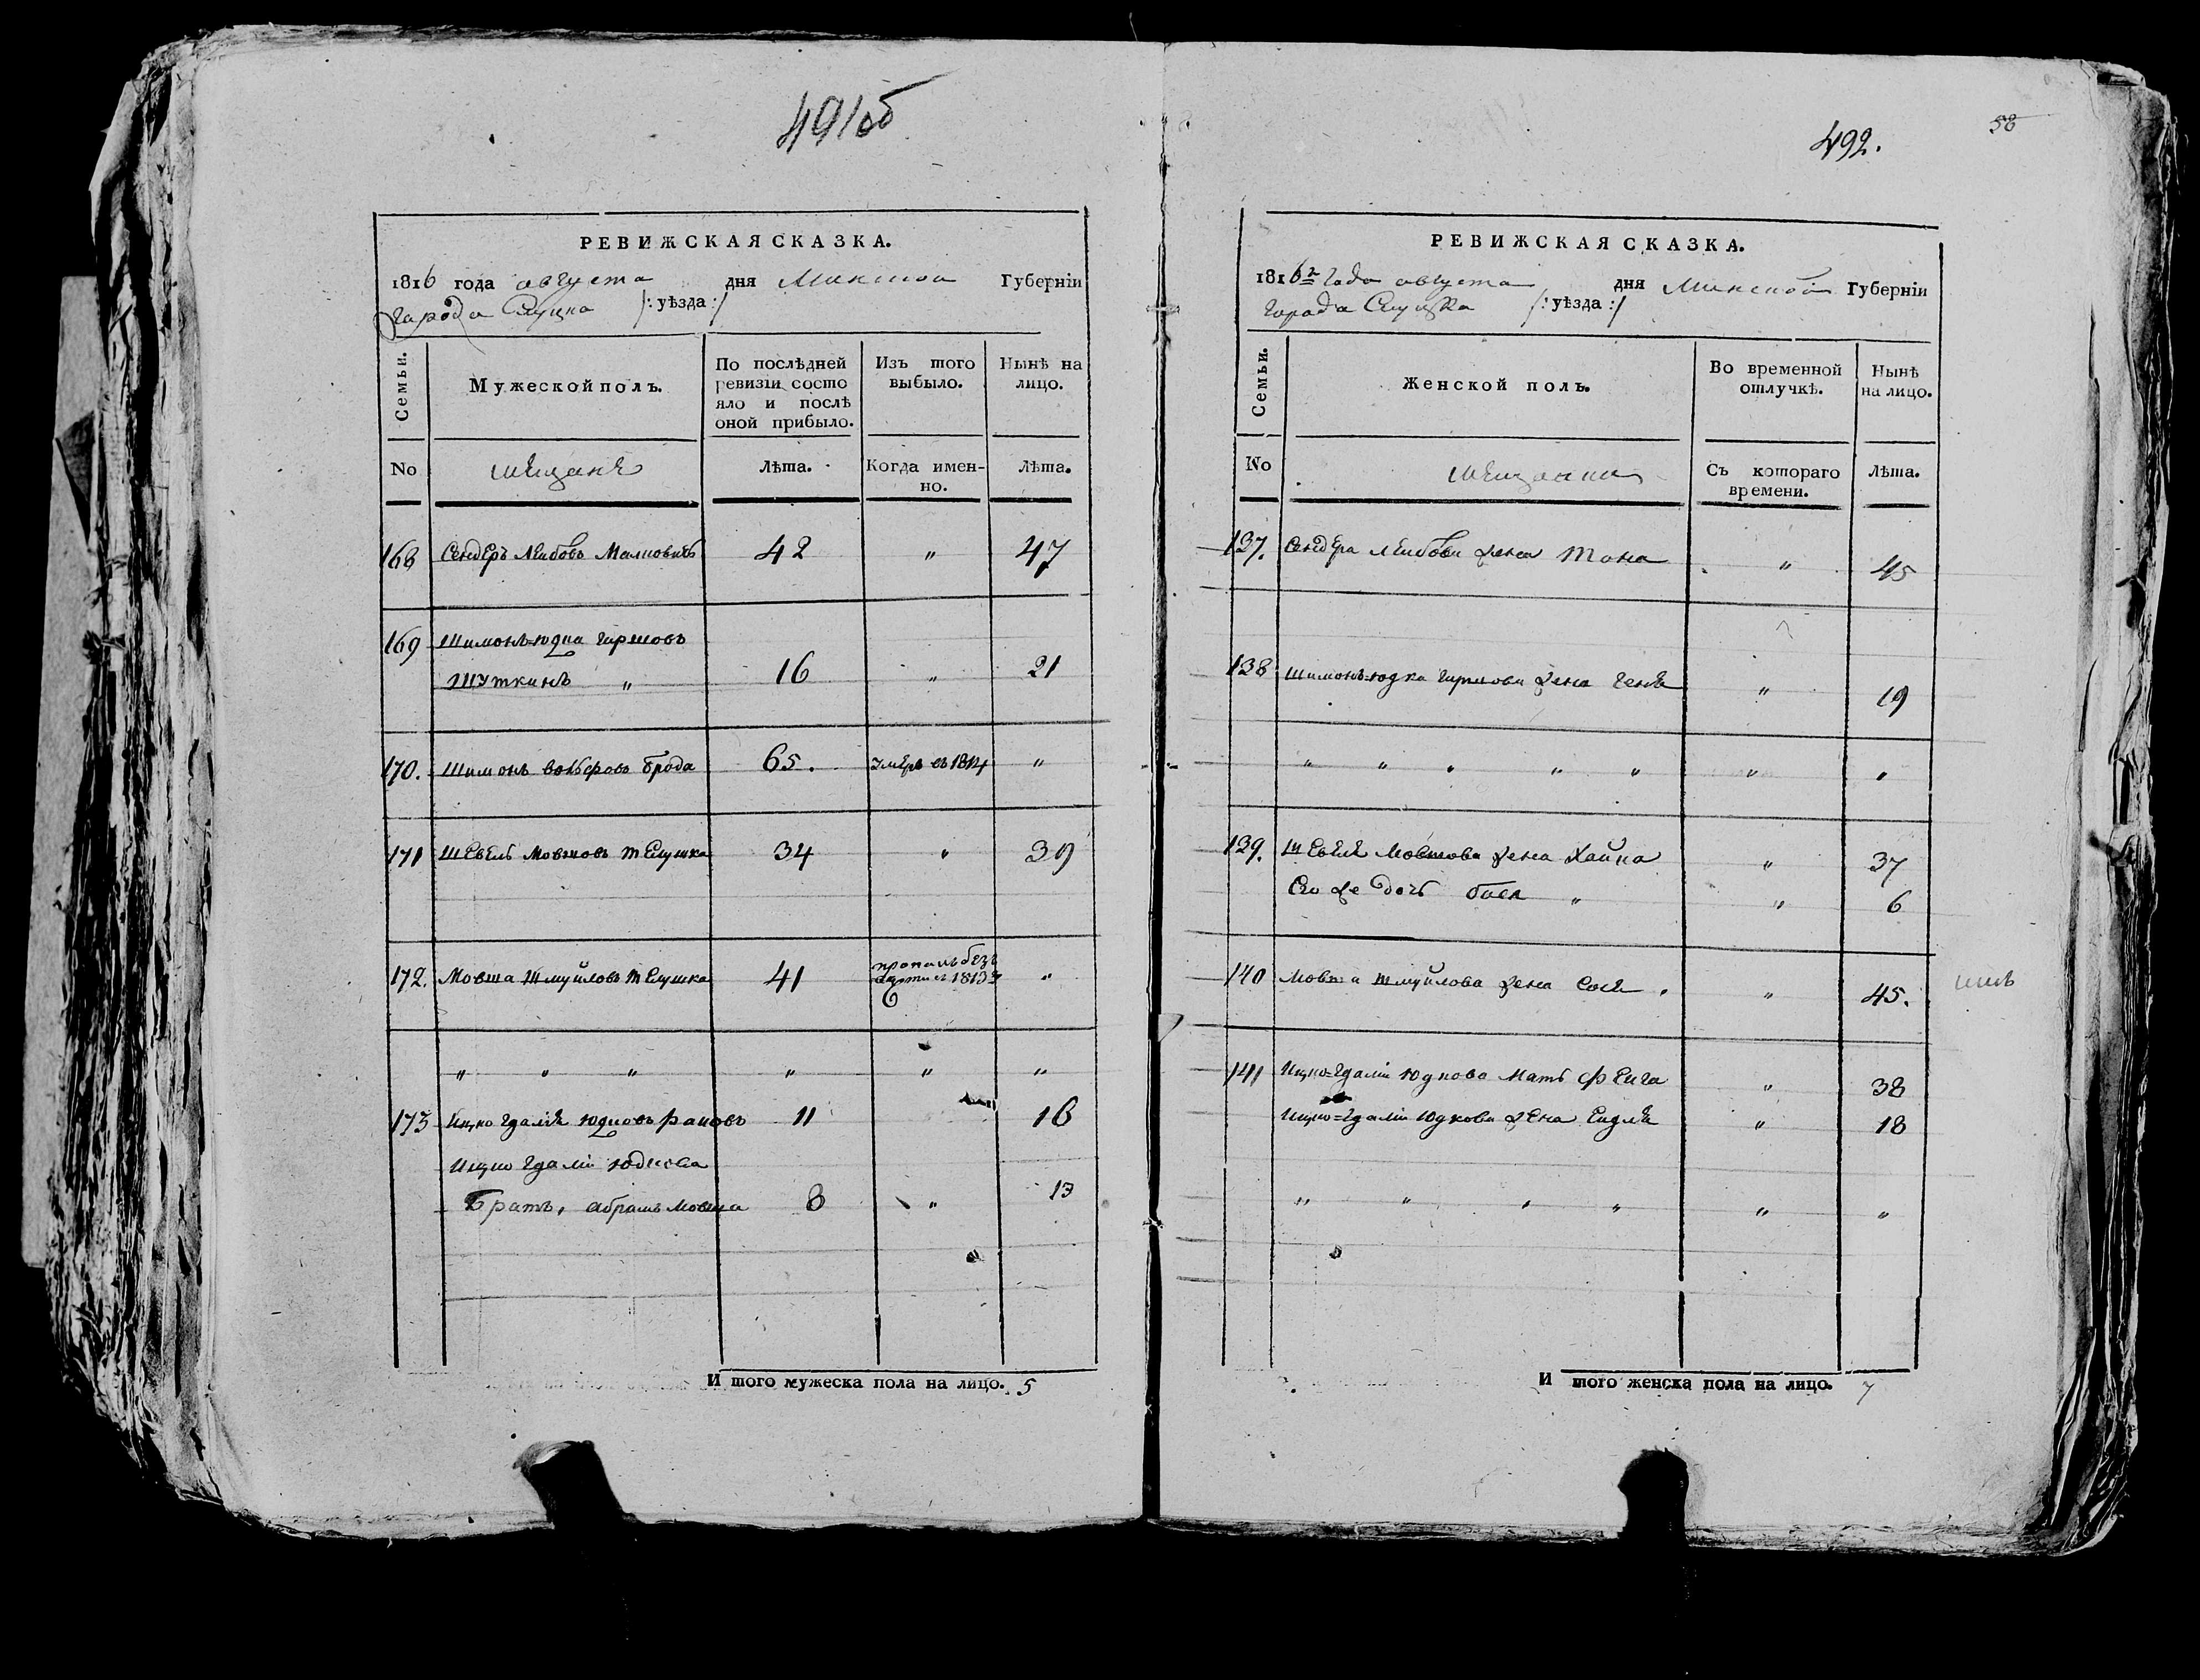 491об
РЕВИЖСКАЯ СКАЗКА.
1816 года августа дня Минской Губерніи
города Слуцка /: уѣзда :/
Семьи.
Мужеской полъ.
По послѣдней
ревизіи состо
яло и послѣ
оной прибыло.
Изъ того
выбыло.
Нынѣ на
лицо.
No
мѣщане
лѣта.
Когда имен-
но.
лѣта.
168 Сендеръ Лейбовъ 42 " 47
169 Шимонъ=Юдка Гиршовъ
Шуткинъ " 16 " 21
170. Шимонъ Вольфовъ Брода 65. умеръ въ 1814 "
171 Шевель Мовшовъ Телушка 34 " 39
172. Мовша Шмуйловъ Телушка 41 пропалъ безъ
вѣсти въ 1813 "
" " " " " "
173 Ицко Гдалія Юдковъ Раковъ 11 16
Ицко Гдалія Юдкова
Братъ, Абрамъ Мовша 8 " 13
И того мужеска пола на лицо. 5
58
492.
РЕВИЖСКАЯ СКАЗКА.
1816го Года августа дня Минской Губерніи
города Слуцка /: уѣзда :/
Семьи.
Женской полъ.
Во временной
отлучкѣ.
Нынѣ
на лицо.
No
мѣщанки
Съ котораго
времени.
лѣта.
137. Сендера Лейбова жена " 45
138 Шимонъ=Юдка Гиршова жена Геня " 19
" " " " " " "
139. Шевеля Мовшова жена Хайка " 37
Его же дочь " " 6
140 Мовша Шмуйлова жена Сося " 45.
141 Ицко=Гдалія Юдкова мать Фейга " 38
Ицко=Гдалія Юдкова жена Ейдля " 18
" " " " " "
И того женска пола на лицо. 7